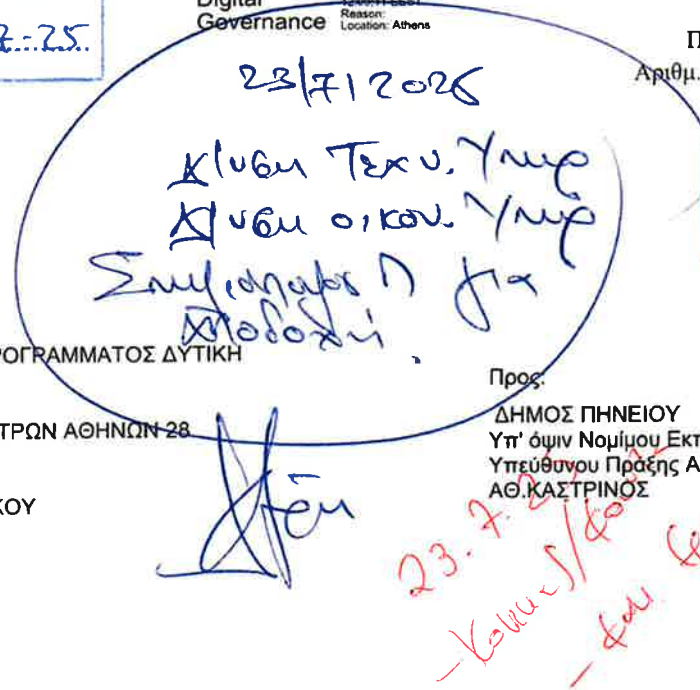 Digital
Governance
Reason:
Location: Athens
7-25
Αριθμ.
23/7/2025
Δ/νση Τεχν. Υπηρ
Δ/νση οικον. Υπηρ
για
Αποδοχή.
ΡΟΓΡΑΜΜΑΤΟΣ ΔΥΤΙΚΗ
ΤΡΩΝ ΑΘΗΝΩΝ 28
ΚΟΥ
Προς:
ΔΗΜΟΣ ΠΗΝΕΙΟΥ
Υπ' όψιν Νομίμου Εκπ
Υπεύθυνου Πράξης Α
ΑΘ.ΚΑΣΤΡΙΝΟΣ
23.7.25